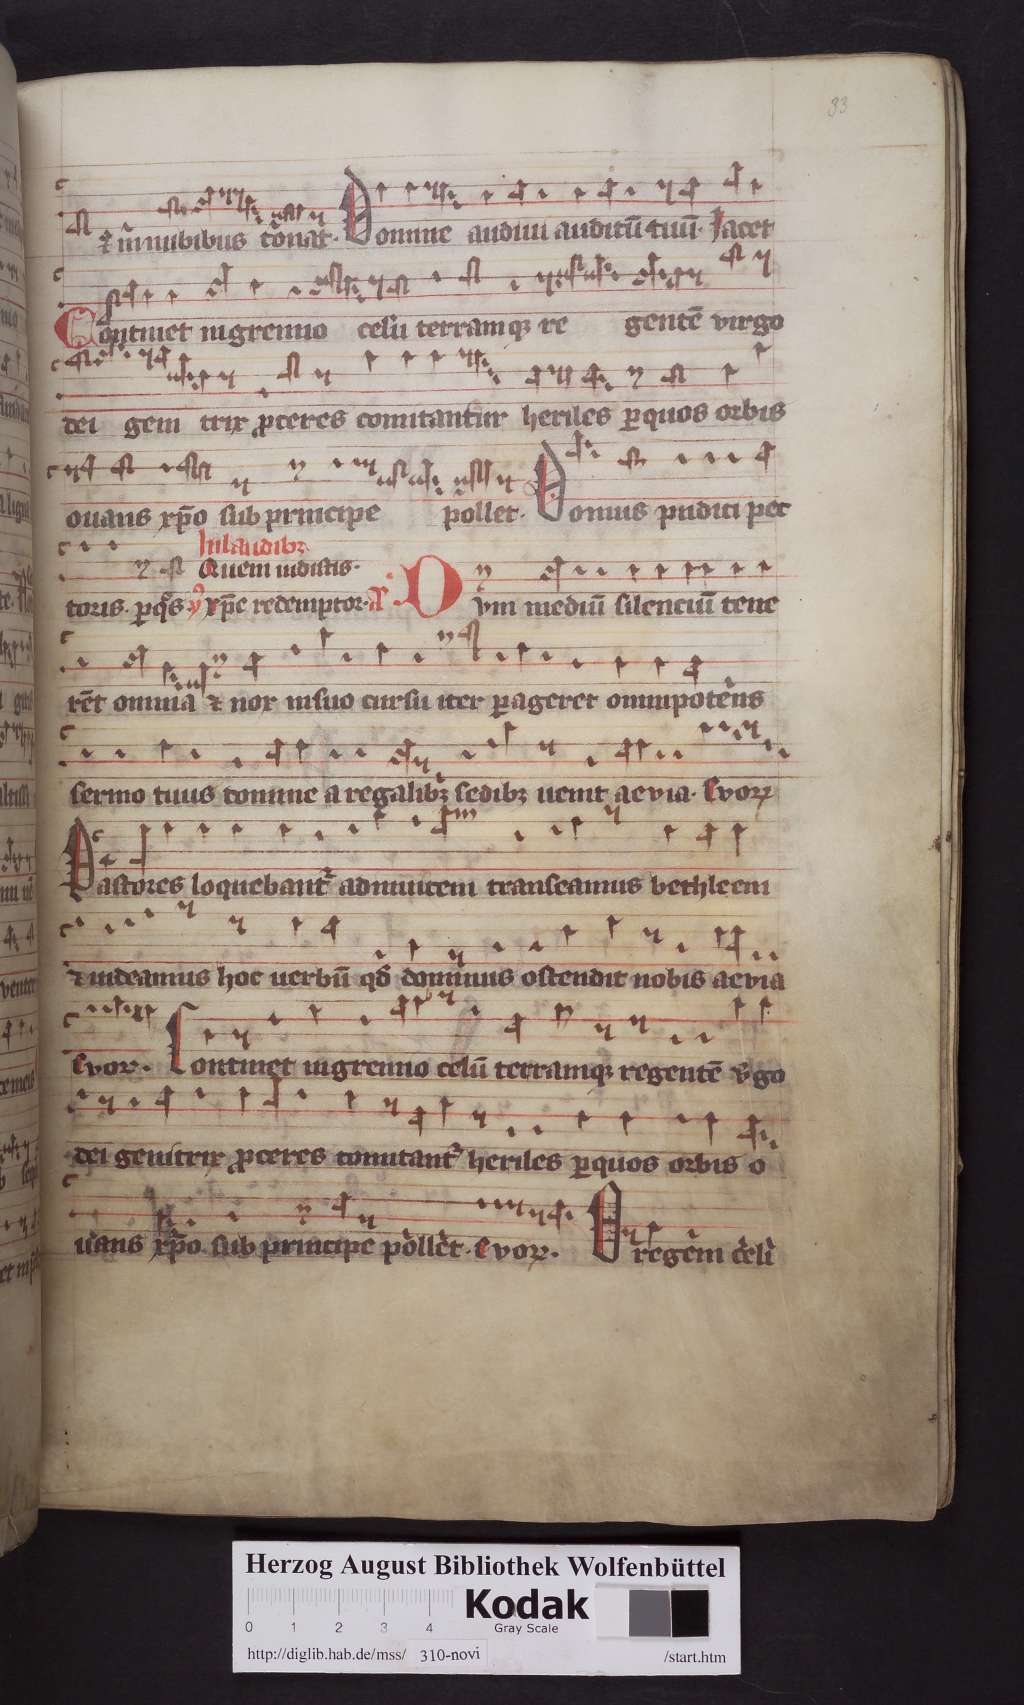 33
⁊ īnnubibus tōnat. Domine audiui auditū tuū. Iacet
Continet ingremio celū terramqꝫ re gentē virgo
dei geni trix ꝓceres comitantur heriles ꝑquos orbis
ouans xp̄o sub principe pollet. Domus pudici pec
Inlaudibꝫ
Quem uidistis.
toris. ꝑqͦs xp̄e redemptor. A Dvm mediū silenciū tene
rēt omnia ⁊ nox insuo cursu iter ꝑageret omnipotens
sermo tuus domine a regalibꝫ sedibꝫ uenit aevia. Evoꝝ
Pastores loquebant᷑ adinuicem transeamus bethleem
⁊ uideamus hoc uerbū qd̄ dominus ostendit nobis aevia
Evoꝝ. Continet ingremio celū terramqꝫ regentē v̄go
dei genitrix ꝓceres comitant᷑ heriles ꝑquos orbis o
uans xp̄o sub principe pollet. Evoꝝ. regem celi
Herzog August Bibliothek Wolfenbüttel
0 1 2 3 4 Kodak
Gray Scale
http://diglib.hab.de/mss/ 310-novi /start.htm